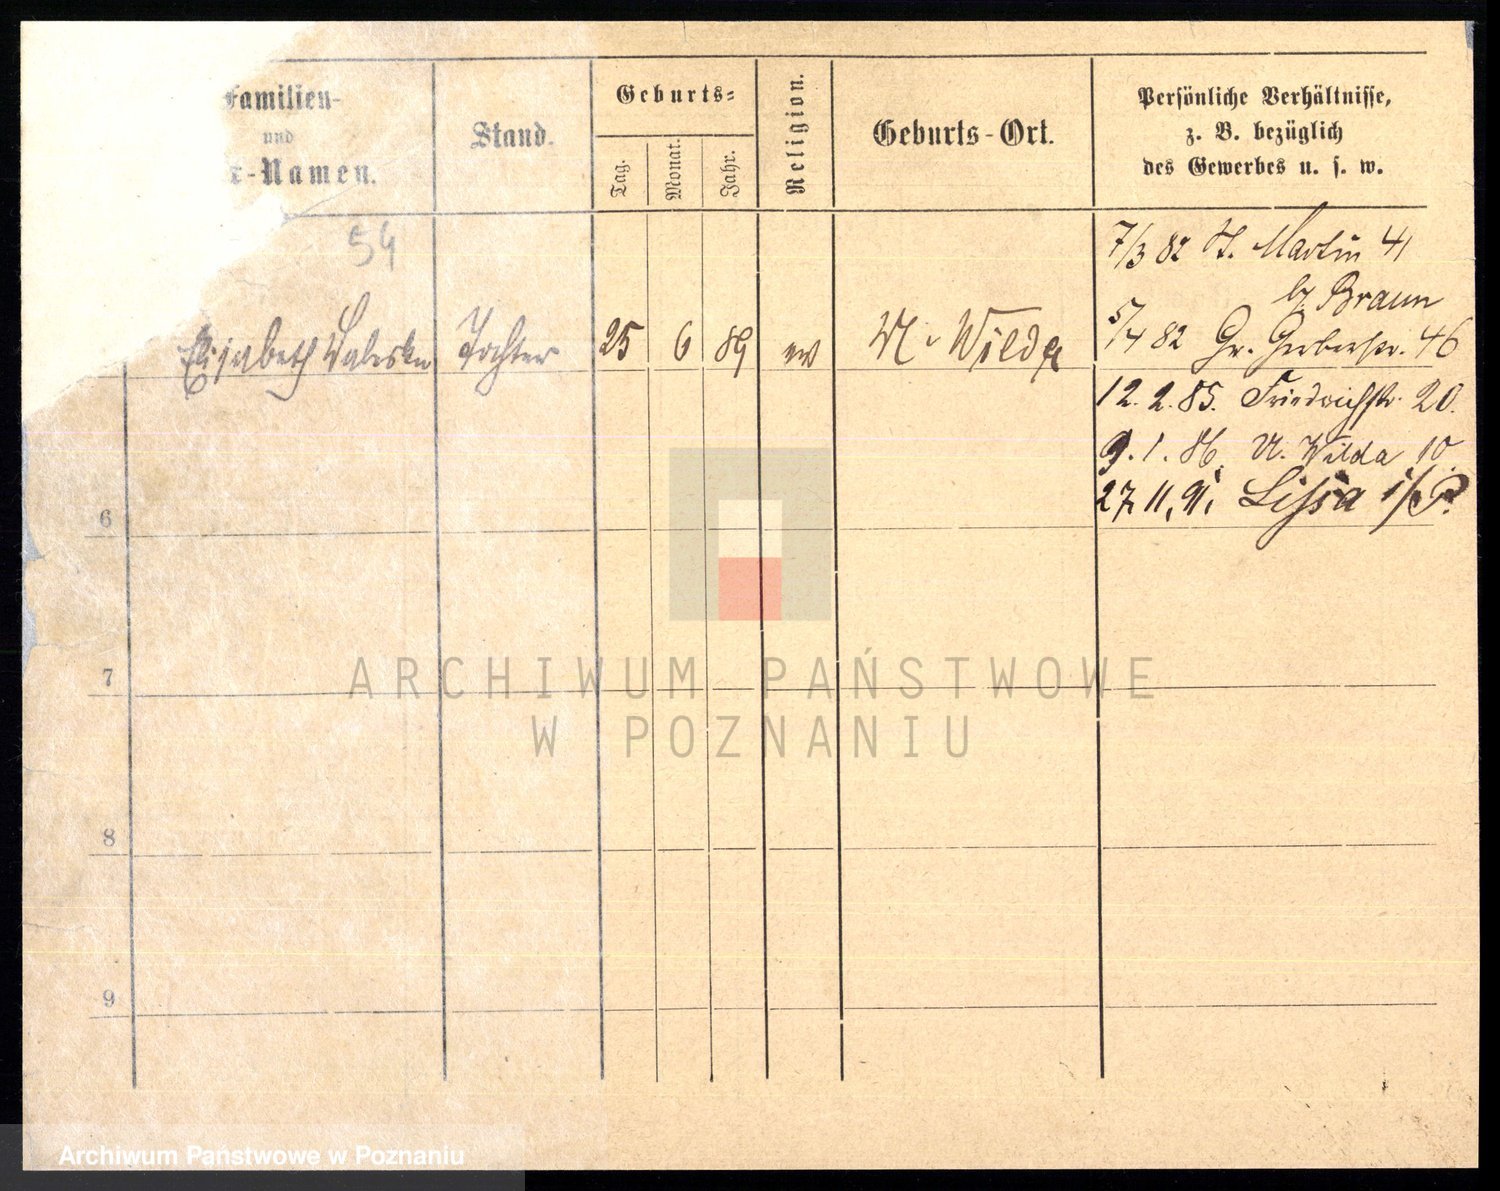 Familien-
und
r-Namen.
Stand.
Geburts-
Tag.
Monat.
Jahr.
Religion.
Geburts-Ort.
Persönliche Verhältnisse,
z. B. bezüglich
des Gewerbes u. s. w.
54
7/3 82 St. Martin 41
b/ Braun
5/4 82 Gr. Gerberstr. 46
Elisabeth Valeska Tochter 25 6 89 ev U. Wilda
12. 2. 85. Friedrichstr. 20.
9. 1. 86. U. Wilda 10.
27. 11. 91. Lissa i/P.
6
7
8
9
ARCHIWUM PAŃSTWOWE
W POZNANIU
Archiwum Państwowe w Poznaniu